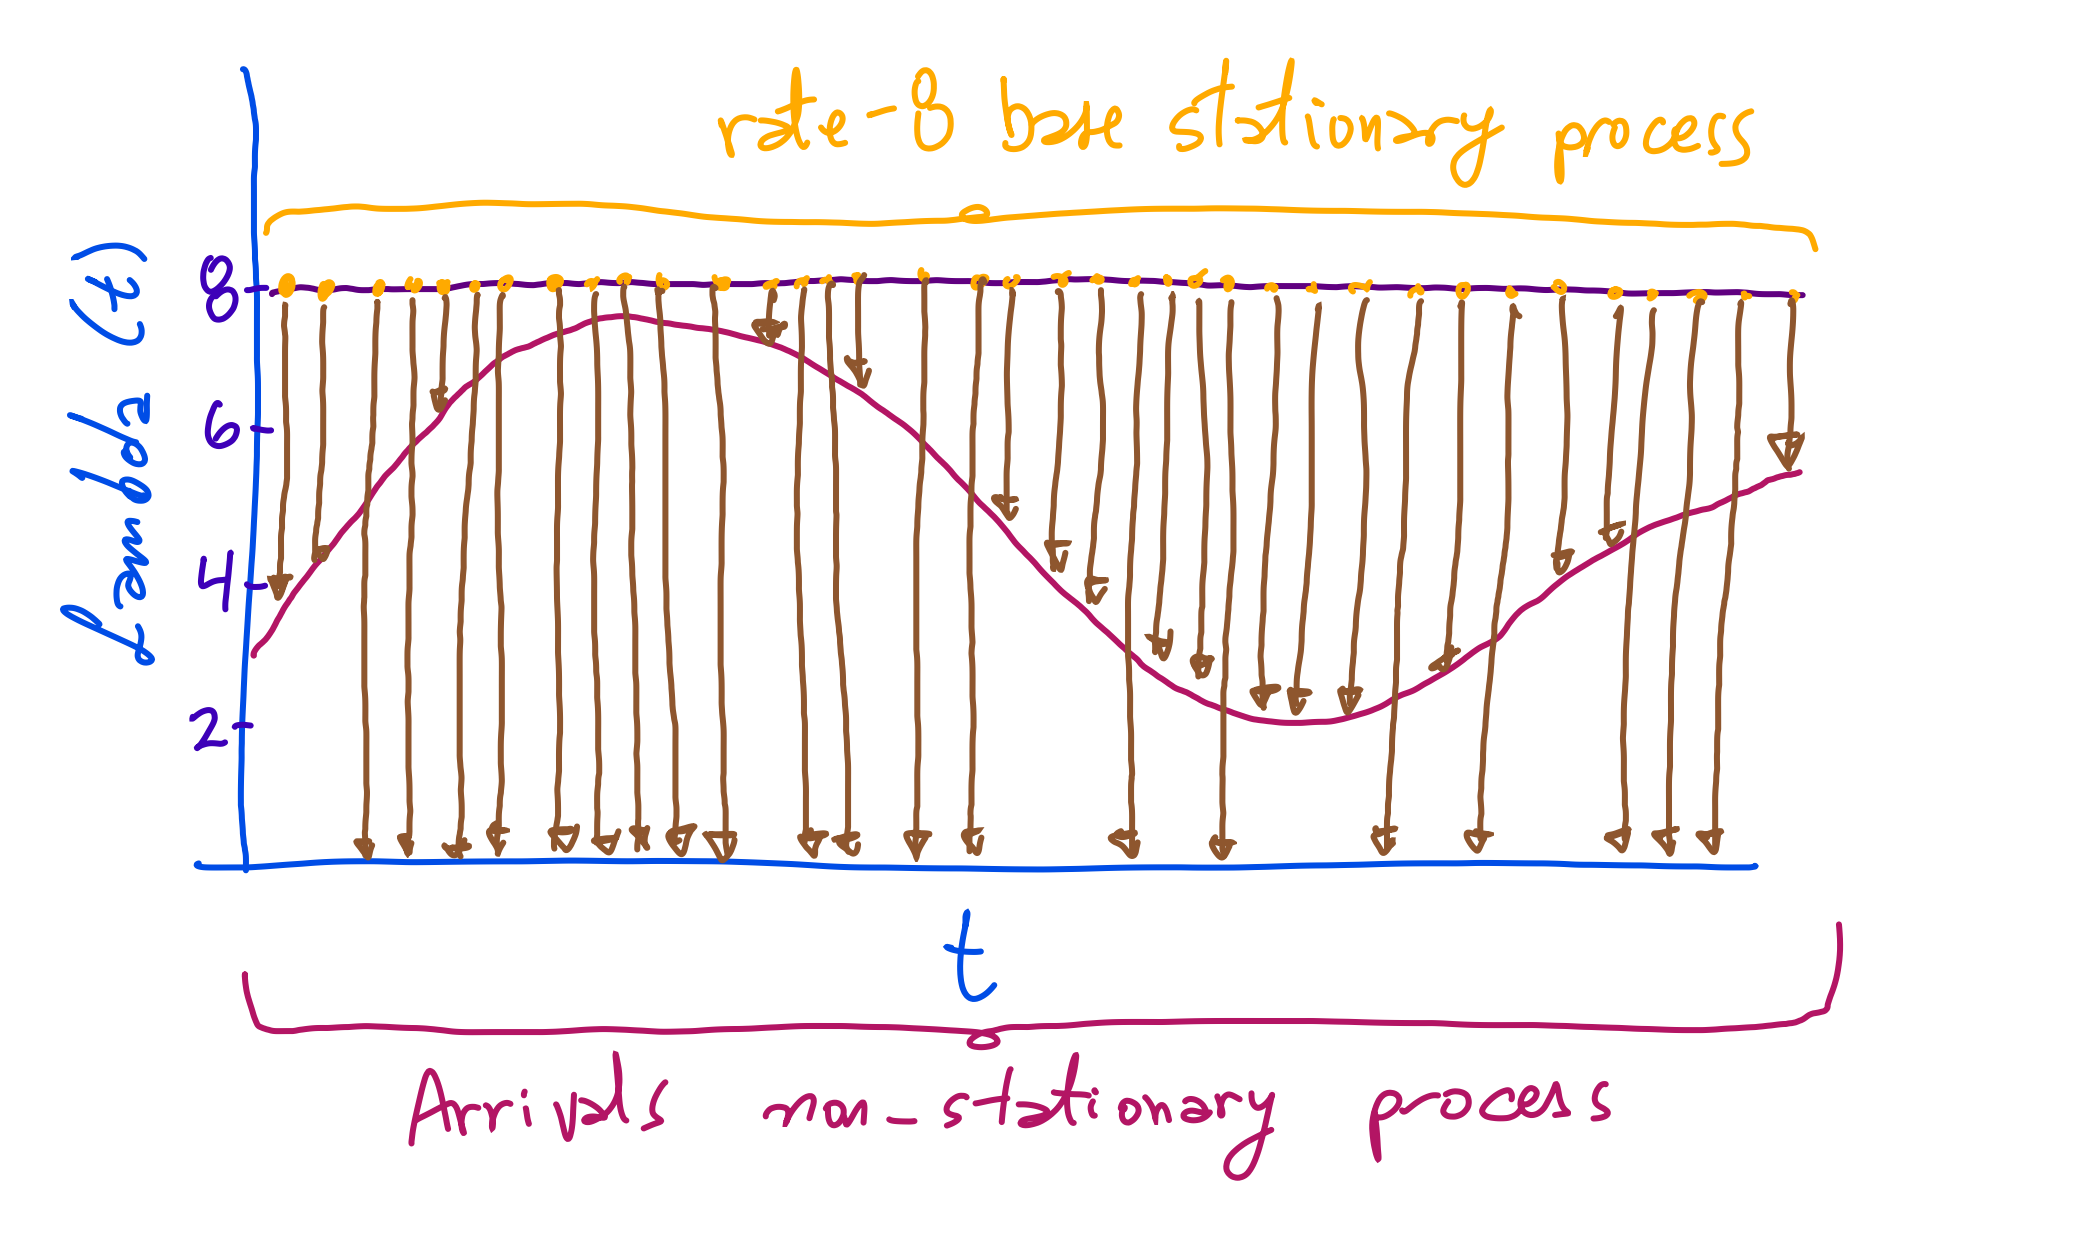 rate-8 base stationary process
Lambda (t)
8
6
4
2
t
Arrivals non-stationary process